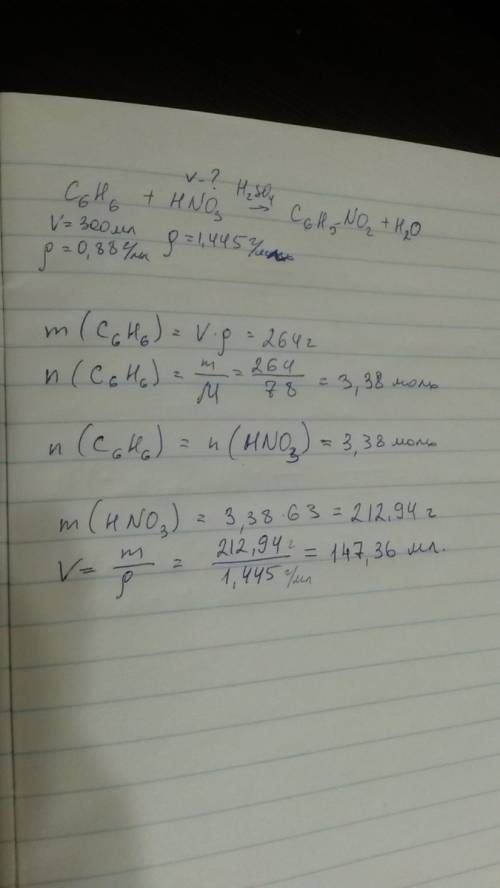 V - ?
C₆H₆ + HNO₃ H₂SO₄ → C₆H₅NO₂ + H₂O
V = 300 мл
ρ = 0,88 г/мл ρ = 1,445 г/мл
m (C₆H₆) = V·ρ = 264 г
n (C₆H₆) = m/M = 264/78 = 3,38 моль
n (C₆H₆) = n (HNO₃) = 3,38 моль
m (HNO₃) = 3,38 · 63 = 212,94 г
V = m/ρ = 212,94 г/1,445 г/мл = 147,36 мл.